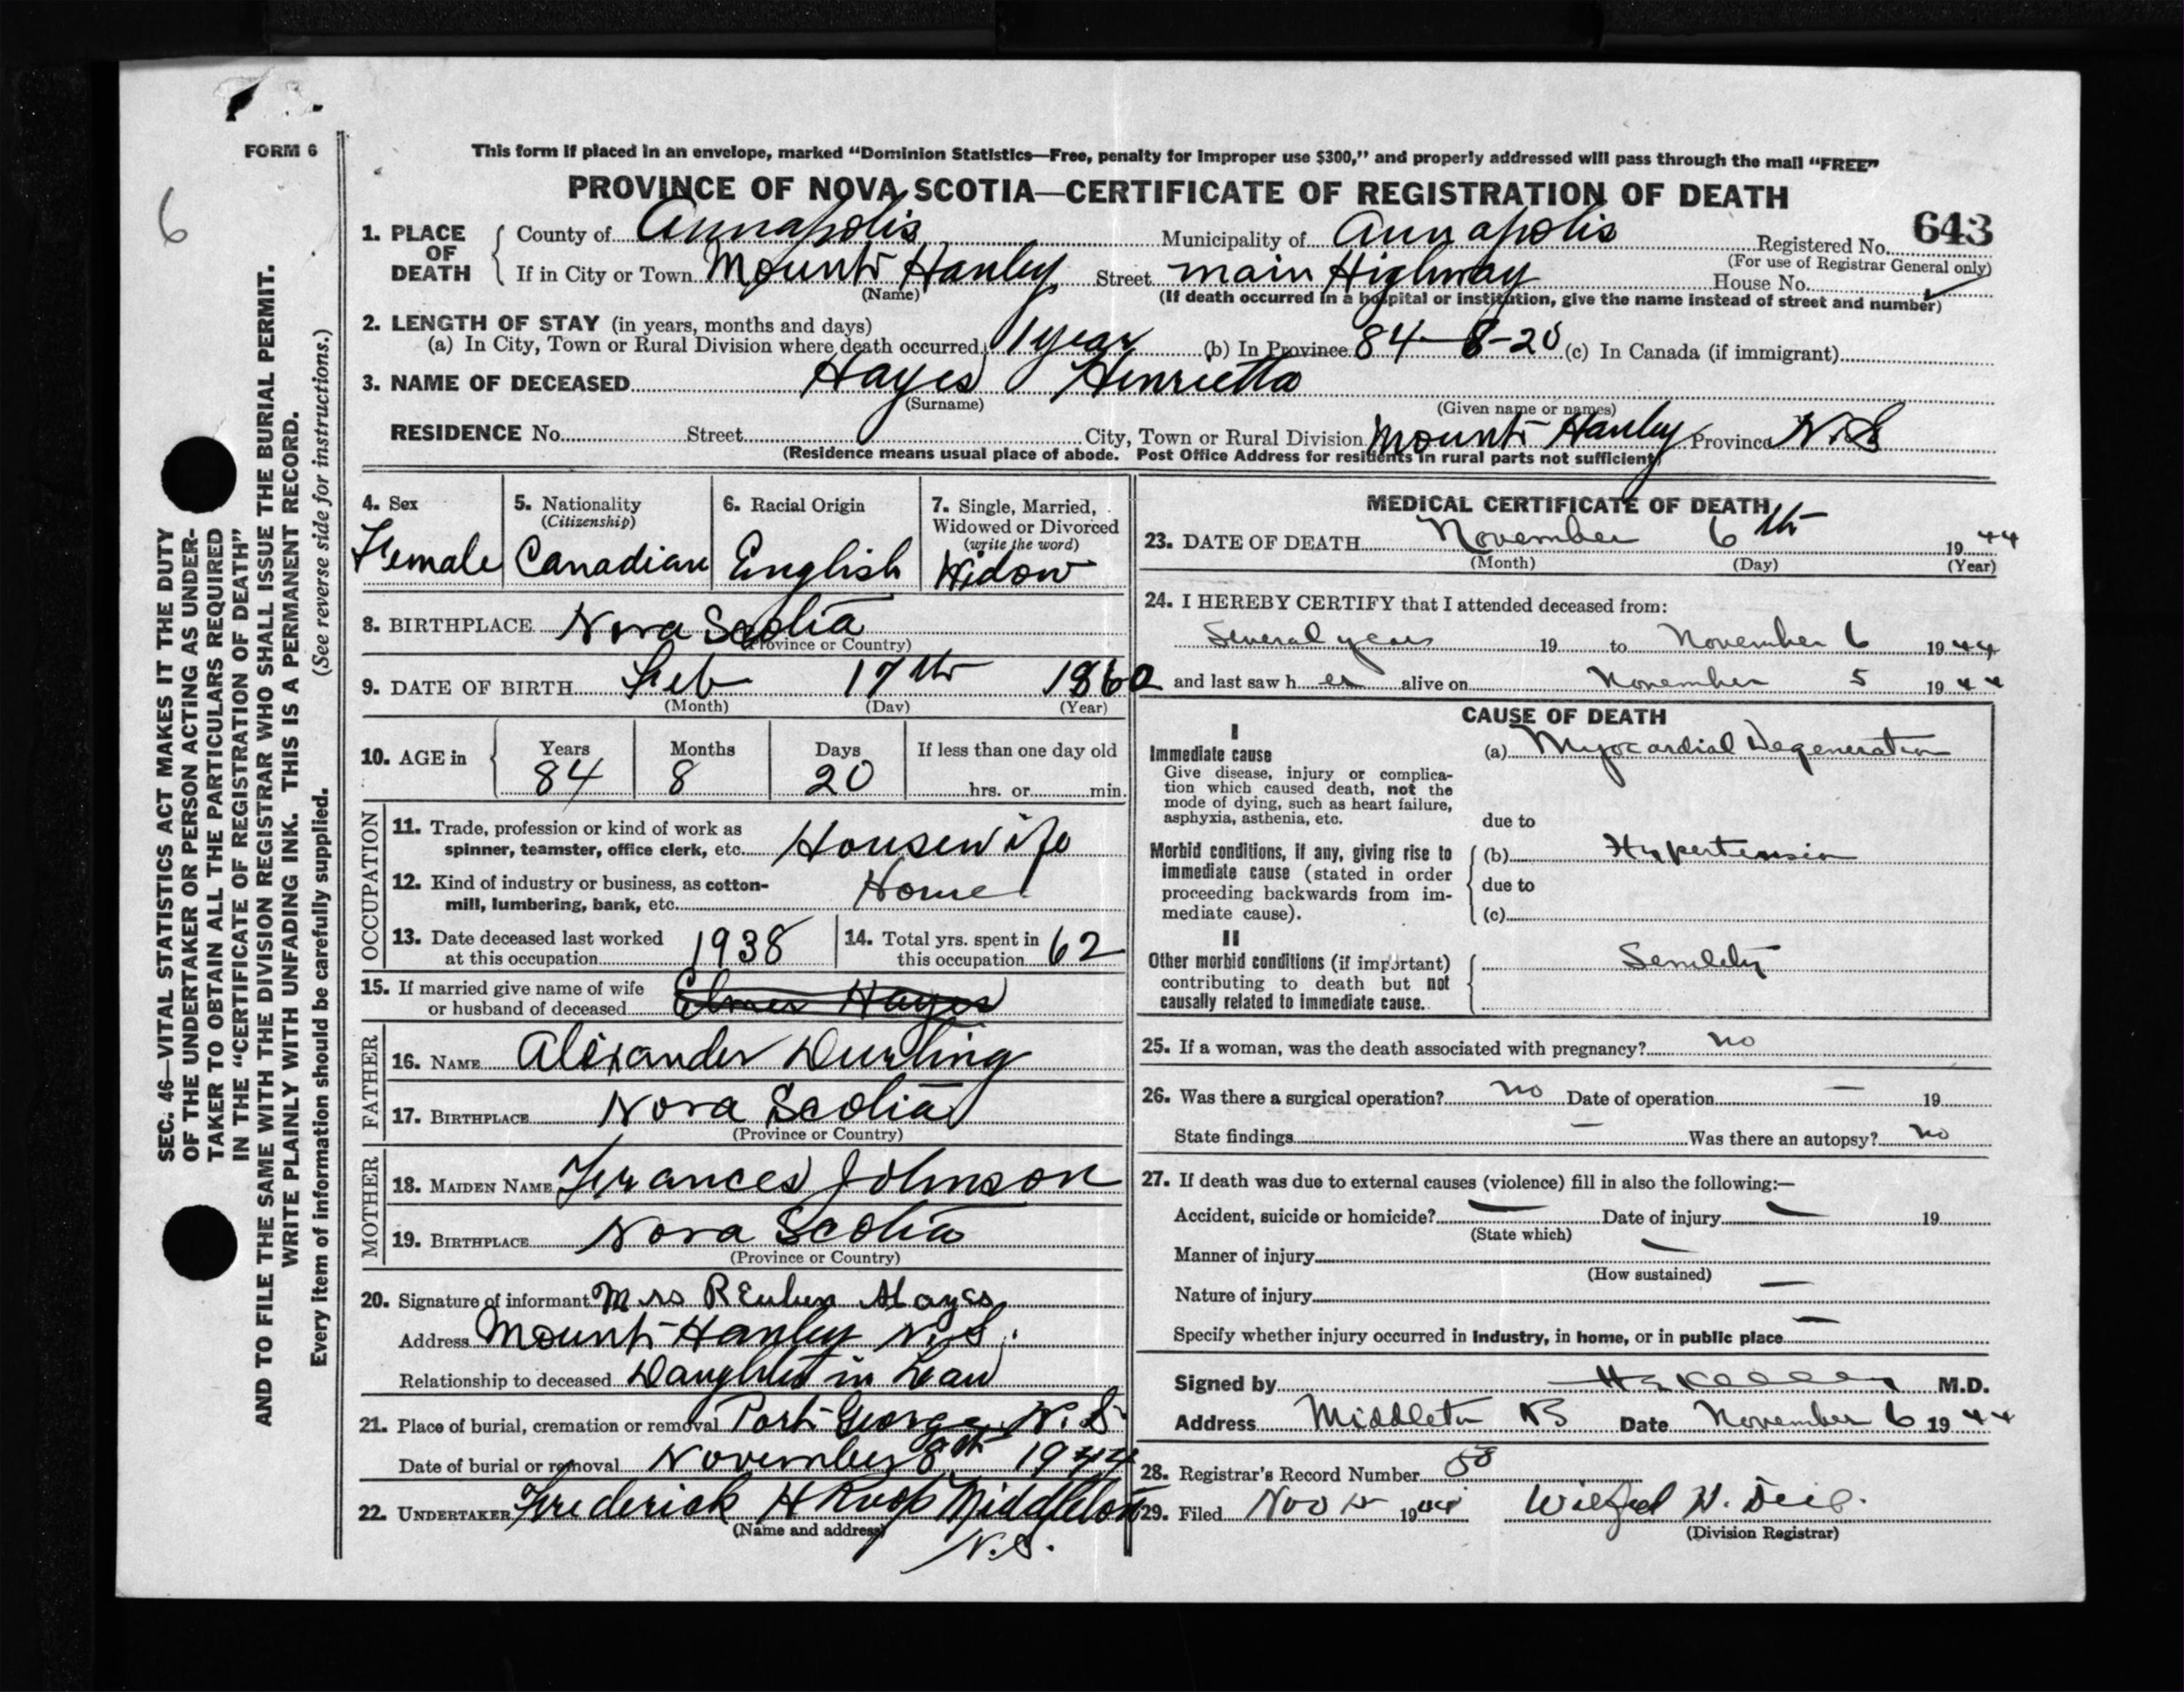 FORM 6
6
This form if placed in an envelope, marked "Dominion Statistics—Free, penalty for improper use $300," and properly addressed will pass through the mail "FREE"
PROVINCE OF NOVA SCOTIA—CERTIFICATE OF REGISTRATION OF DEATH
1. PLACE OF DEATH { County of Annapolis Municipality of Annapolis Registered No. 643
(For use of Registrar General only)
If in City or Town Mount Hanley Street main Highway House No.
(Name) (If death occurred in a hospital or institution, give the name instead of street and number)
2. LENGTH OF STAY (in years, months and days)
(a) In City, Town or Rural Division where death occurred 1 year (b) In Province 84-8-20 (c) In Canada (if immigrant)
3. NAME OF DECEASED Hayes Henrietta
(Surname) (Given name or names)
RESIDENCE No. Street City, Town or Rural Division Mount Hanley Province N.S
(Residence means usual place of abode. Post Office Address for residents in rural parts not sufficient)
4. Sex Female
5. Nationality (Citizenship) Canadian
6. Racial Origin English
7. Single, Married, Widowed or Divorced (write the word) Widow
8. BIRTHPLACE Nova Scotia
(Province or Country)
9. DATE OF BIRTH Feb 17th 1860
(Month) (Day) (Year)
10. AGE in { Years 84 Months 8 Days 20 If less than one day old hrs. or min.
OCCUPATION
11. Trade, profession or kind of work as spinner, teamster, office clerk, etc. Housewife
12. Kind of industry or business, as cotton-mill, lumbering, bank, etc. Home
13. Date deceased last worked at this occupation 1938
14. Total yrs. spent in this occupation 62
15. If married give name of wife or husband of deceased Elmer Hayes
FATHER
16. NAME Alexander Durling
17. BIRTHPLACE Nova Scotia
(Province or Country)
MOTHER
18. MAIDEN NAME Frances Johnson
19. BIRTHPLACE Nova Scotia
(Province or Country)
20. Signature of informant Mrs REuben Hayes
Address Mount Hanley N.S.
Relationship to deceased Daughter in Law
21. Place of burial, cremation or removal Port George N.S
Date of burial or removal November 8th 1944
22. UNDERTAKER Frederick H Roop Middleton
(Name and address) N.S.
MEDICAL CERTIFICATE OF DEATH
23. DATE OF DEATH November 6th 1944
(Month) (Day) (Year)
24. I HEREBY CERTIFY that I attended deceased from:
Several years 19 to November 6 1944
and last saw her alive on November 5 1944
CAUSE OF DEATH
I
Immediate cause (a) Myocardial Degeneration
Give disease, injury or complication which caused death, not the mode of dying, such as heart failure, asphyxia, asthenia, etc.
due to
Morbid conditions, if any, giving rise to immediate cause (stated in order proceeding backwards from immediate cause).
(b) Hypertension
due to
(c)
II
Other morbid conditions (if important) contributing to death but not causally related to immediate cause.
Senility
25. If a woman, was the death associated with pregnancy? no
26. Was there a surgical operation? no Date of operation — 19
State findings — Was there an autopsy? no
27. If death was due to external causes (violence) fill in also the following:—
Accident, suicide or homicide? — Date of injury — 19
(State which)
Manner of injury —
(How sustained)
Nature of injury —
Specify whether injury occurred in industry, in home, or in public place —
Signed by M.D.
Address Middleton NS Date November 6 1944
28. Registrar's Record Number 58
29. Filed Nov 1944 Wilfred
(Division Registrar)
SEC. 46—VITAL STATISTICS ACT MAKES IT THE DUTY
OF THE UNDERTAKER OR PERSON ACTING AS UNDER-
TAKER TO OBTAIN ALL THE PARTICULARS REQUIRED
IN THE "CERTIFICATE OF REGISTRATION OF DEATH"
AND TO FILE THE SAME WITH THE DIVISION REGISTRAR WHO SHALL ISSUE THE BURIAL PERMIT.
WRITE PLAINLY WITH UNFADING INK. THIS IS A PERMANENT RECORD.
Every item of information should be carefully supplied. (See reverse side for instructions.)